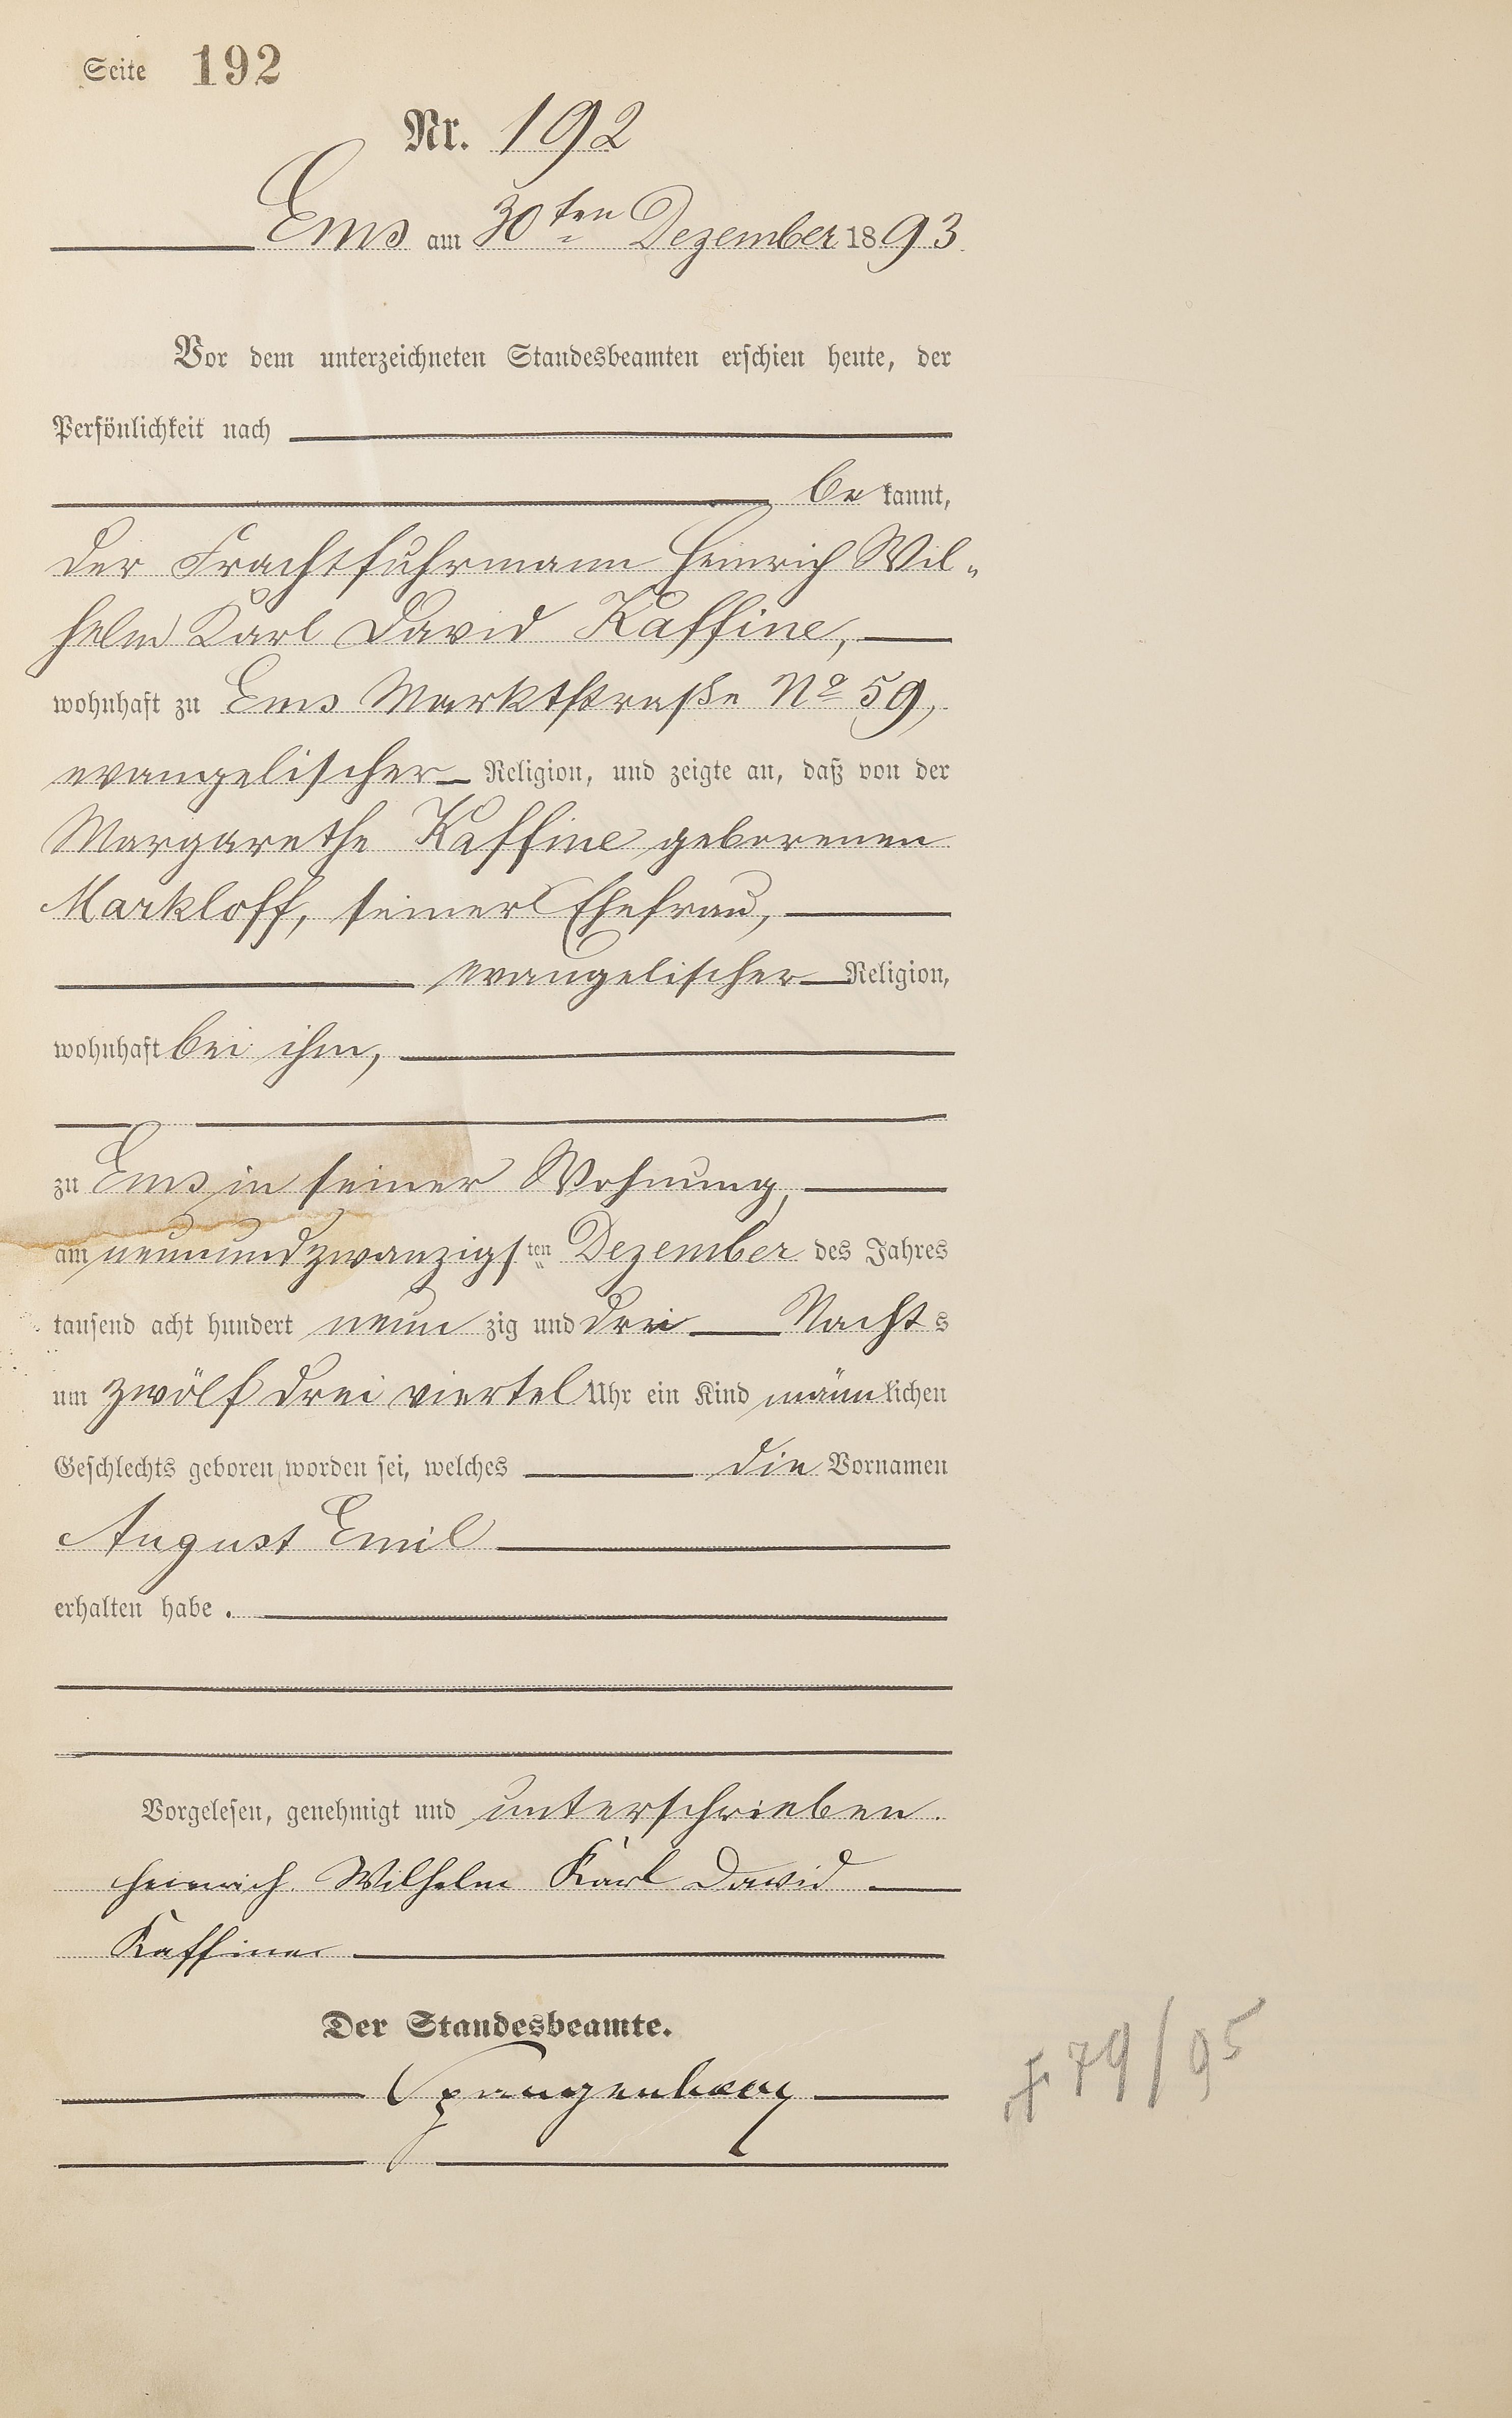 Seite 192
Nr. 192
Ems am 30ten Dezember 1893
Vor dem unterzeichneten Standesbeamten erschien heute, der
Persönlichkeit nach
bekannt,
der Frachtfuhrmann Heinrich Wil-
helm Karl David Kaffine,
wohnhaft zu Ems Marktstraße No 59,
evangelischer Religion, und zeigte an, daß von der
Margarethe Kaffine geborenen
Markloff, seiner Ehefrau,
evangelischer Religion,
wohnhaft bei ihm,
zu Ems in seiner Wohnung,
am neunundzwanzigsten Dezember des Jahres
tausend acht hundert neunzig und drei Nachts
um zwölf drei viertel Uhr ein Kind männlichen
Geschlechts geboren worden sei, welches die Vornamen
August Emil
erhalten habe.
Vorgelesen, genehmigt und unterschrieben.
Heinrich Wilhelm Karl David
Kaffine
Der Standesbeamte.
Spangenberg
†. 79/95